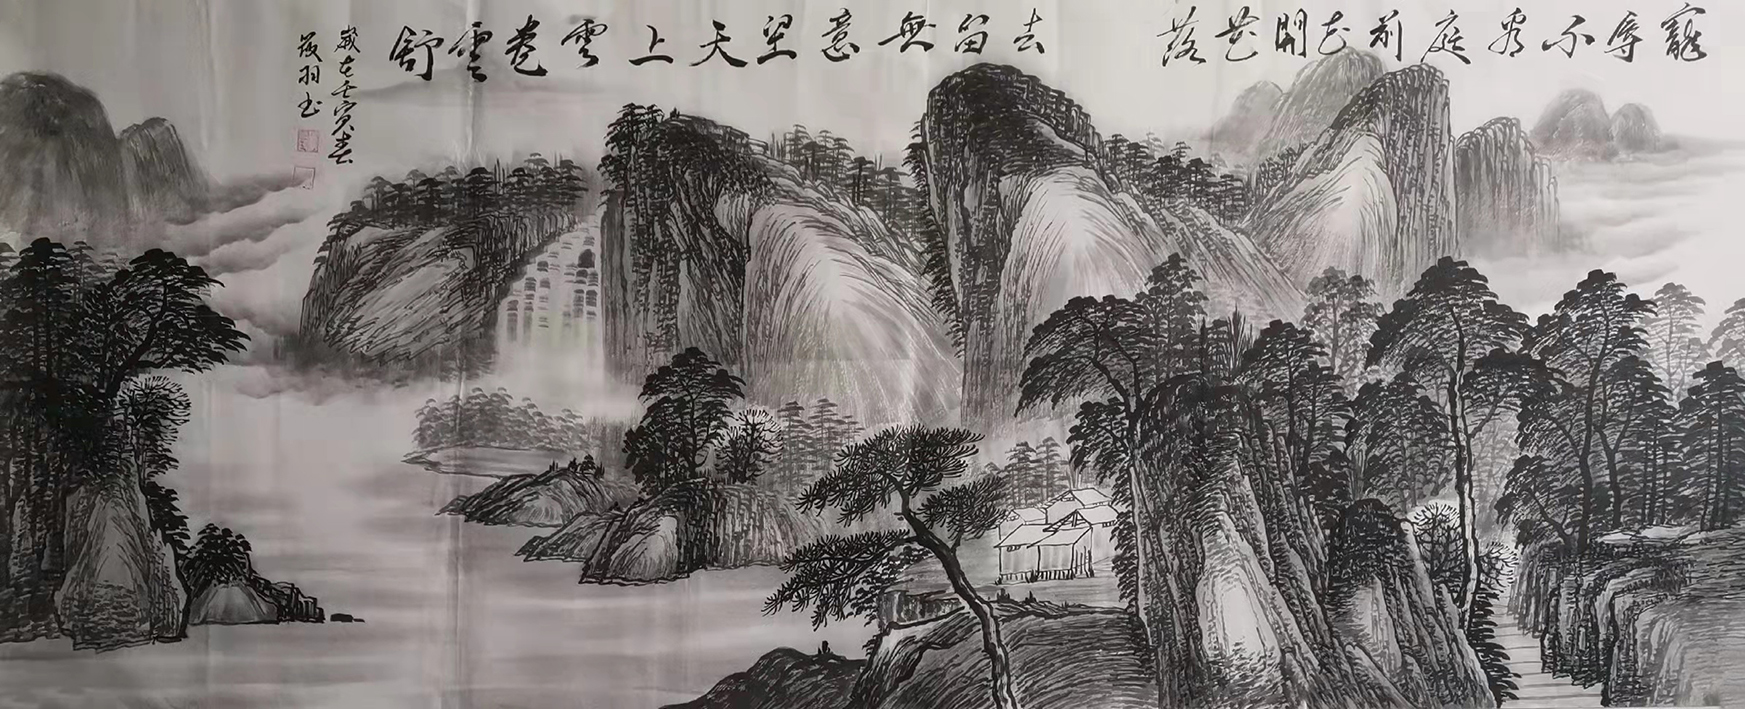 寵辱不看庭前花開花落
去留無意望天上雲卷雲舒
歲在壬寅春
羽书